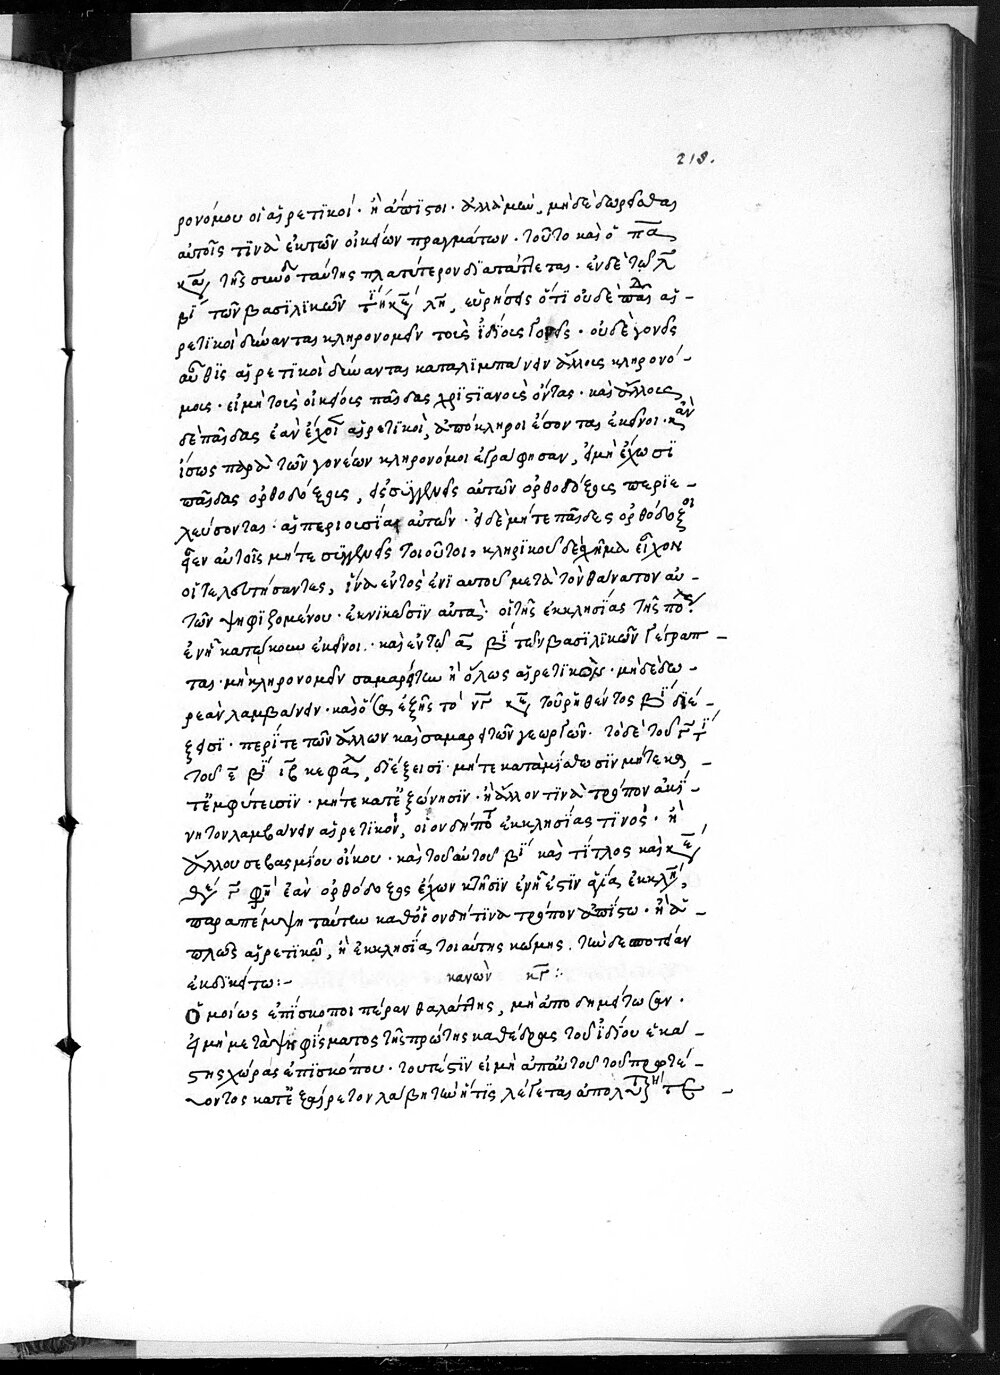 218.
ρονόμου οἱ αἱρετϊκοί · ἢ ἀπϊστοι · ἀλλὰ μὴν, μὴ δὲ δωρεῖσθαι
αὐτοῖς τϊνὰ ἐκ τῶν οἰκείων πραγμάτων · τοῦτο καὶ ὁ
τῆς συνόδ ταύτης πλατύτερον δϊαπλάττεται · ἐν δὲ τῷ
βϊ τῶν βασϊλϊκῶν, εὑρήσεις ὅτϊ οὐδὲ παῖδες αἱ-
ρετϊκοὶ δύνανται κληρονομεῖν τοὺς ἰδίους γονεῖς · οὐδὲ γονεῖς
αὖθϊς αἱρετϊκοὶ δύνανται καταλϊμπάνειν ἄλλους κληρονό-
μους · εἰ μὴ τοὺς οἰκείους παῖδας χρϊστϊανοὺς ὄντας · καὶ ἄλλους
δὲ παῖδας ἐὰν ἔχοι αἱρετϊκοὶ, ἀπόκληροι ἔσονται ἐκεῖνοι · κἂν
ἴσως παρὰ τῶν γονέων κληρονόμοι ἐγράφησαν, εἰ μὴ ἔχωσϊ
παῖδας ὀρθοδόξους, εἰς συγγενεῖς αὐτῶν ὀρθοδόξους περϊε-
λεύσονται · αἱ περιουσίαι αὐτῶν · εἰ δὲ μήτε παῖδες ὀρθόδοξοι
εἶεν αὐτοῖς μήτε συγγενεῖς τοιοῦτοι, κληρϊκοῦ δὲ σχῆμα εἶχον
οἱ τελευτήσαντες, ἵνα ἐντὸς ἐνϊαυτοῦ μετὰ τὸν θάνατον αὐ-
τῶν ψηφϊζομένου · ἐκνϊκῶσϊν αὐτὰ · οἱ τῆς ἐκκλησίας τῆς πό
ἐν ᾗ κατῴκουν ἐκεῖνοι · καὶ ἐν τῷ βϊ τῶν βασϊλϊκῶν γέγραπ-
ται · μὴ κληρονομεῖν σαμαρείτην ἢ ὅλως αἱρετϊκὸν · μὴ δὲ δω-
ρεὰν λαμβάνειν · καὶ ὁ ἑξῆς τούτου τοῦ ῥηθέντος βϊ δϊέ-
ξεισϊ · περί τε τῶν ἄλλων καὶ σαμαρειτῶν γεωργῶν · τὸ δὲ τοῦ
τοῦ βϊ κεφα, δϊέξεισι · μήτε κατὰ μίσθωσϊν μήτε κα
τ' ἐμφύτευσϊν · μήτε κατ' ἐξώνησϊν · ἢ ἄλλον τϊνὰ τρόπον ἀκί-
νητον λαμβάνειν αἱρετϊκόν, οἱονδήπο ἐκκλησίας τϊνός · ἢ
ἄλλου σεβασμίου οἴκου · καὶ τοῦ αὐτοῦ βϊ καὶ τίτλος καὶ κε
ἐὰν ὀρθόδοξος ἔχων κτῆσϊν ἐν ᾗ ἐστϊν ἁγία ἐκκλη,
παραπέμψῃ ταύτην καθ' οἷον δήτϊνα τρόπον ἀπίστῳ · ἢ ἁ-
πλῶς αἱρετϊκῷ, ἡ ἐκκλησία τοιαύτης κώμης, τὴν δεσποτείαν
ἐκδϊκείτω :-
κανὼν κγ :
Ὁμοίως ἐπίσκοποι πέραν θαλάττης, μὴ ἀποδημείτωσαν ·
εἰ μὴ μετὰ ψηφίσματος τῆς πρώτης καθέδρας τοῦ ἰδίου ἑκά-
στης χώρας ἐπϊσκόπου · τουτέστϊν εἰ μὴ ἀπ' αὐτοῦ τοῦ πρωτεύ-
οντος κατ' ἐξαίρετον λάβῃ τὴν ἥτϊς λέγεται ἀπολυ